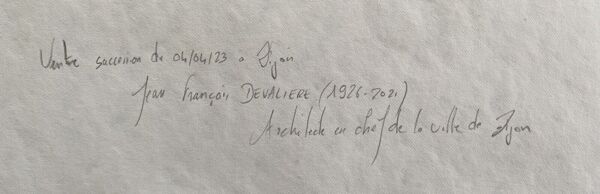 Vente succession du 04/04/23 a Dijon
Jean François DEVALIERE (1926-2021)
Architecte en chef de la ville de Dijon